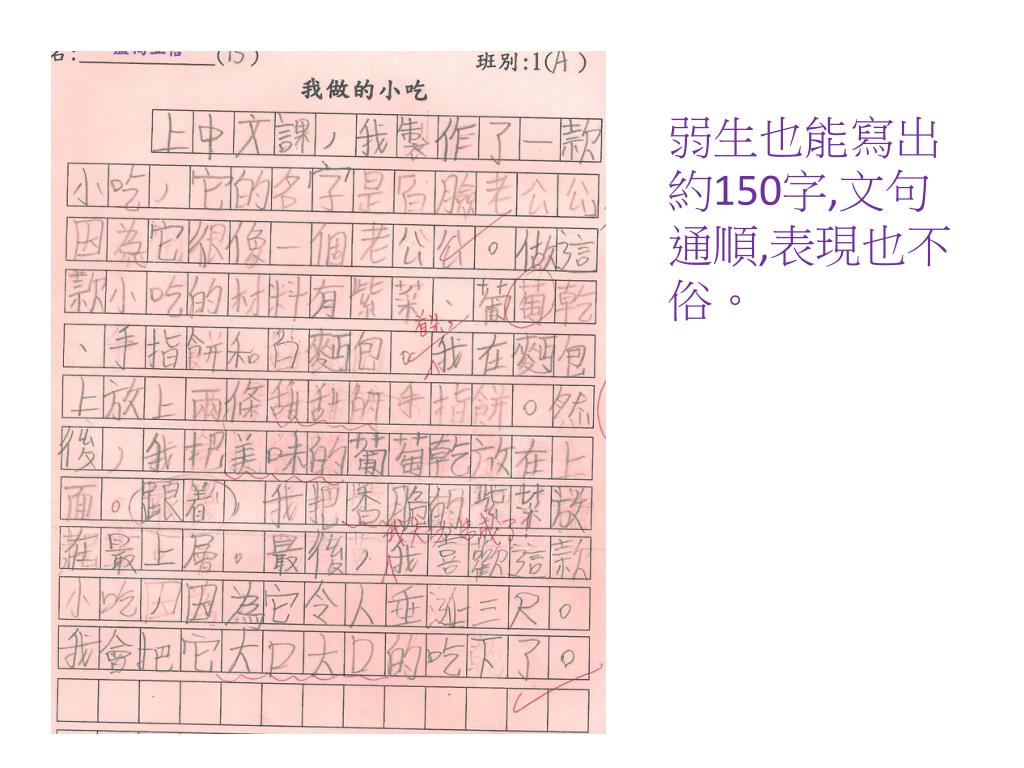 名:(15)
班別:1(A)
我做的小吃
上中文課，我製作了一款
小吃，它的名字是百臉老公公，
因為它很像一個老公公。做這
款小吃的材料有紫菜、葡萄乾
、手指餅和白麵包。我在麵包
首先，
上放上兩條甜甜的手指餅。然
後，我把美味的葡萄乾放在上
面。跟着，我把香脆的紫菜放
在最上層。最後，我喜歡這款
小吃因因為它令人垂涎三尺。
我會把它大口大口的吃下了。
弱生也能寫出
約150字,文句
通順,表現也不
俗。